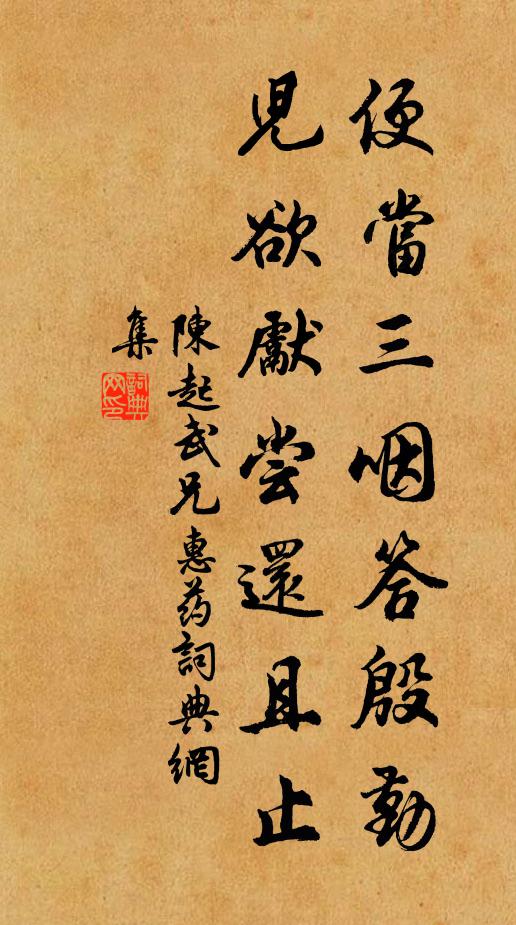 便當三咽答殷勤
兒欲獻尝還且止
陳起武兄惠药詞典網
集
詞典网印